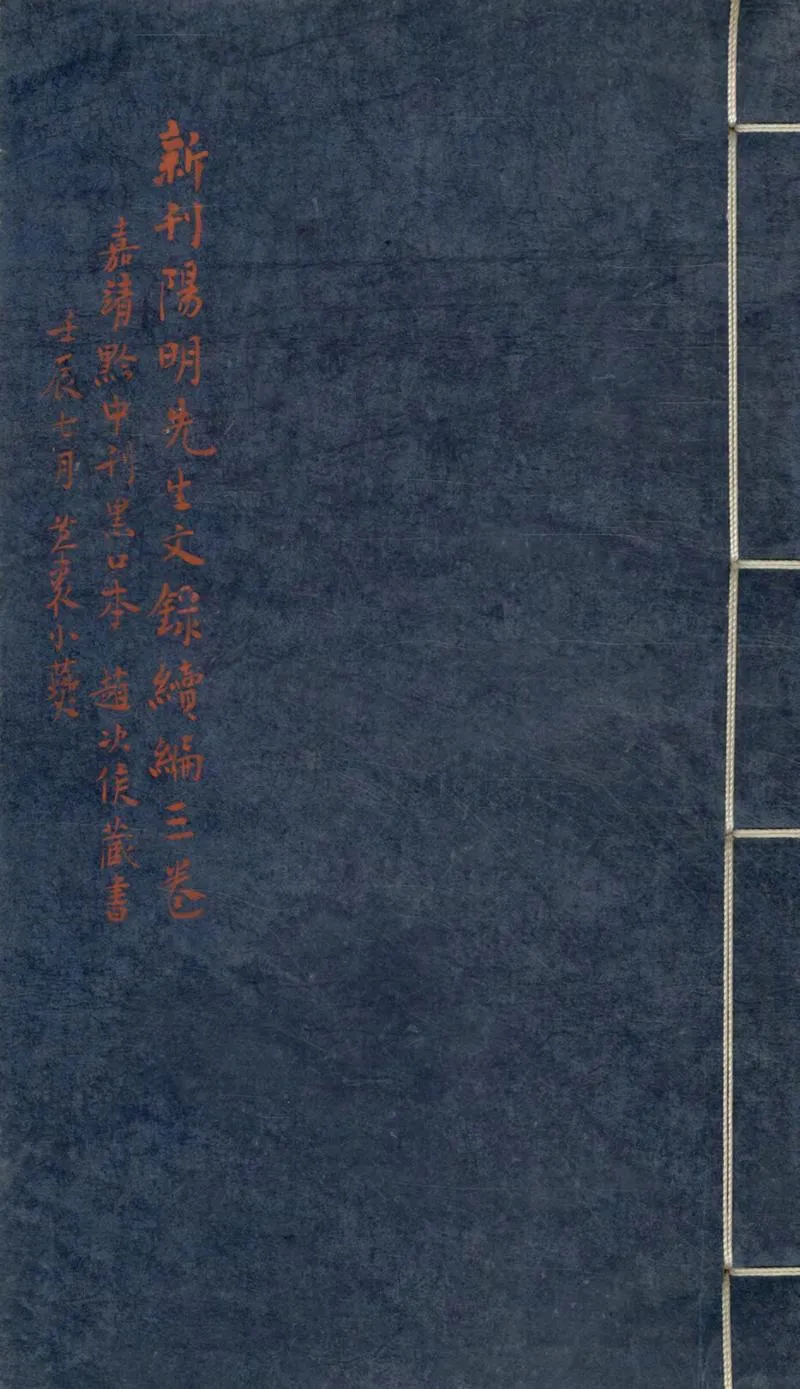 新刊陽明先生文錄續編三卷
嘉靖黔中刊黑口本 趙次侯藏書
壬辰七月 小燹